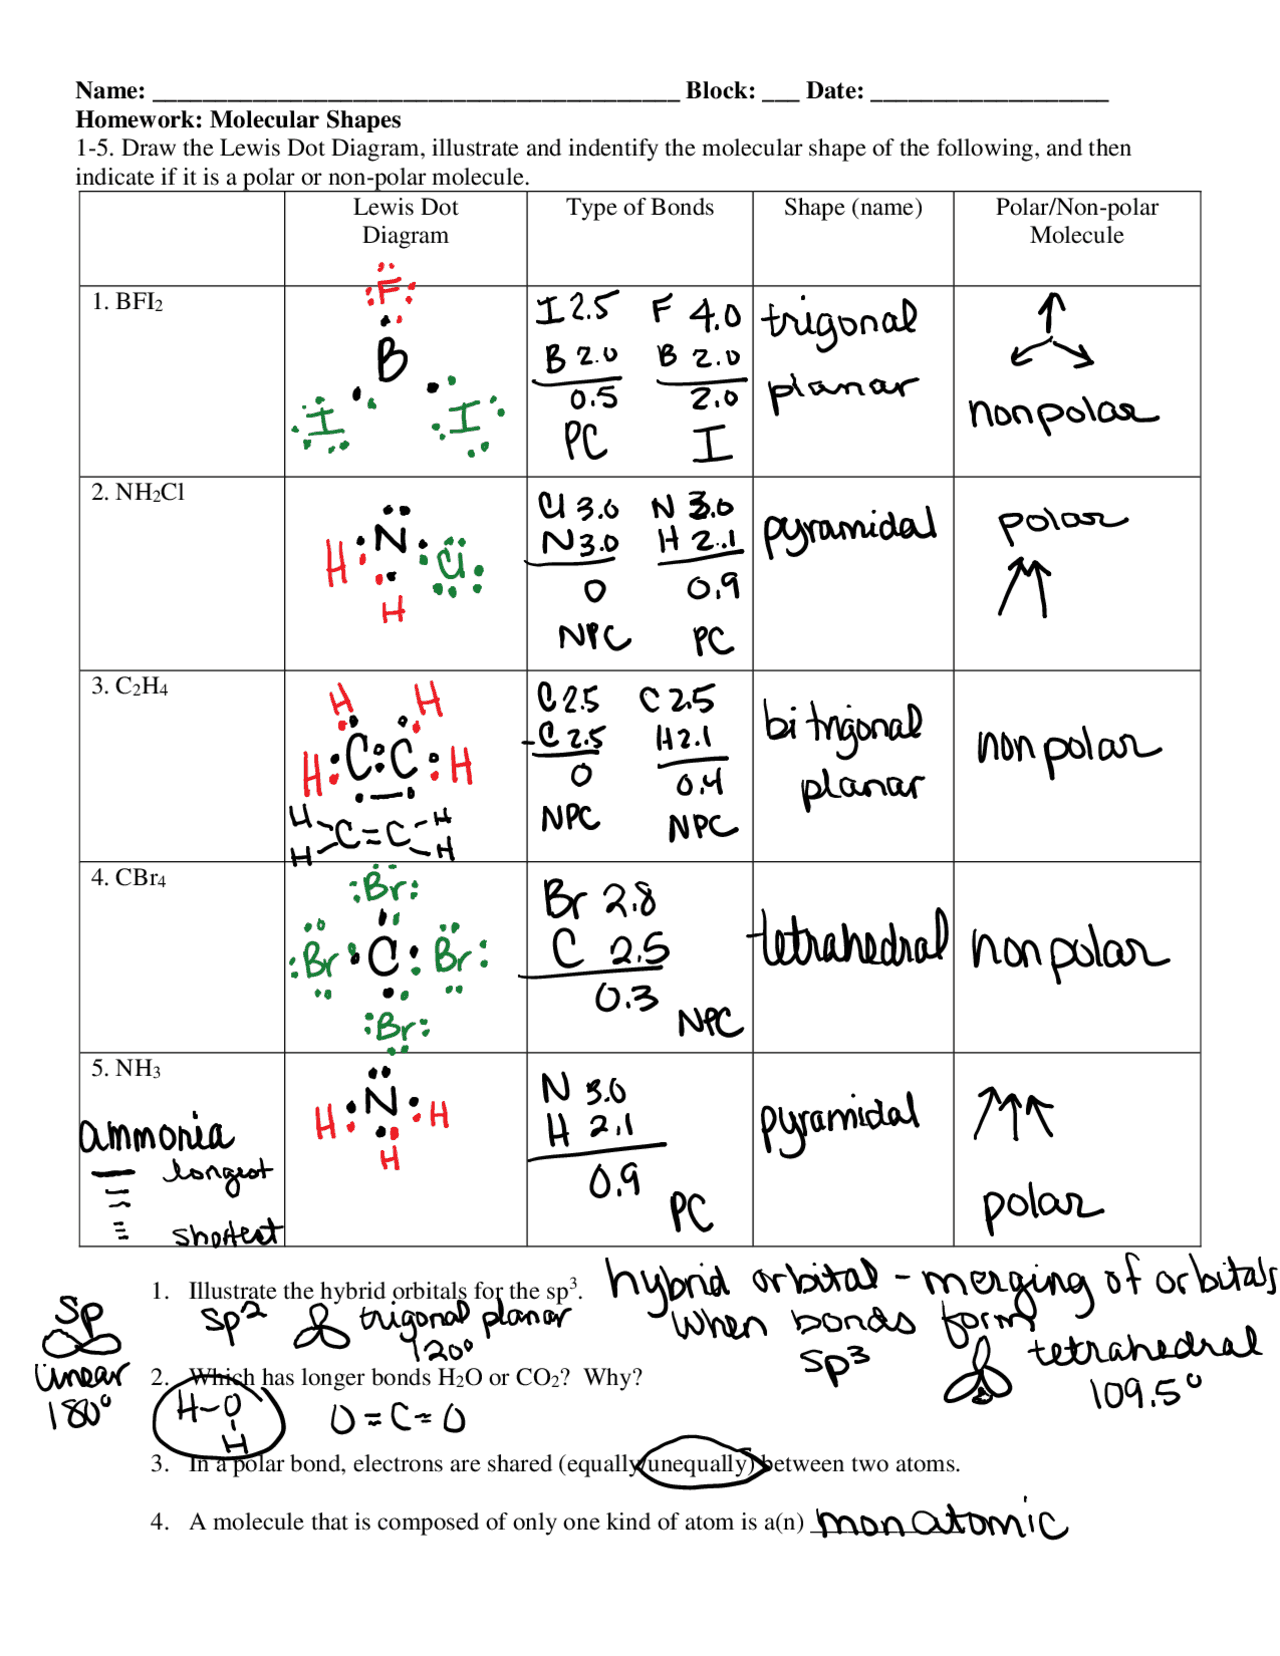 Name: ______________________________________________ Block: ___ Date: ____________________
Homework: Molecular Shapes
1-5. Draw the Lewis Dot Diagram, illustrate and indentify the molecular shape of the following, and then
indicate if it is a polar or non-polar molecule.
Lewis Dot Diagram
Type of Bonds
Shape (name)
Polar/Non-polar Molecule
1. BFI2
F
B
I I
I 2.5 F 4.0
B 2.0 B 2.0
0.5 2.0
PC I
trigonal
planar
nonpolar
2. NH2Cl
H N Cl
H
Cl 3.0 N 3.0
N 3.0 H 2.1
0 0.9
NPC PC
pyramidal
polar
3. C2H4
H H
H C C H
H H
C=C
H H
C 2.5 C 2.5
-C 2.5 H 2.1
0 0.4
NPC NPC
bitrigonal
planar
nonpolar
4. CBr4
Br
Br C Br
Br
Br 2.8
C 2.5
0.3
NPC
tetrahedral
nonpolar
5. NH3
ammonia
longest
shortest
H N H
H
N 3.0
H 2.1
0.9
PC
pyramidal
polar
1. Illustrate the hybrid orbitals for the sp3.
hybrid orbital - merging of orbitals
when bonds form
sp
linear
180°
sp2 trigonal planar
120°
sp3 tetrahedral
109.5°
2. Which has longer bonds H2O or CO2? Why?
H-O
H
O=C=O
3. In a polar bond, electrons are shared (equally/unequally) between two atoms.
4. A molecule that is composed of only one kind of atom is a(n) monatomic